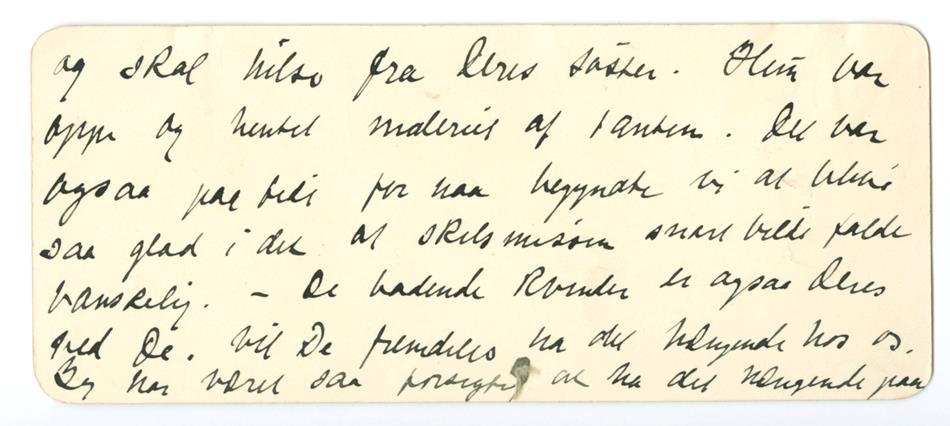 og skal hilse fra Deres søster. Hun var
oppe og hentet maleriet af tanten. Det var
ogsaa paa tide for naa begyndte vi at blive
saa glad i det at skilsmissen snart vilde falde
vanskelig. – De badende Kvinder er ogsaa Deres
ved De. Vil De fremdeles ha det hængende hos os.
Jeg har været saa forsigtig at ha det hængende paa